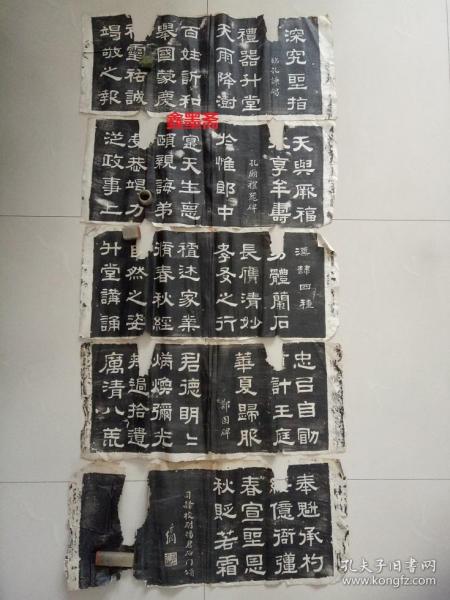 深究聖指
禮器升堂
天雨降澍
百姓訢和
舉國蒙慶
神靈祐誠
竭敬之報
鑫墨斋
天與厥福
永享牟壽
孔廟禮器碑
於惟郎中
寔天生惪
頤親誨弟
虔恭竭力
從政事上
漢隸四種
體蘭石
長膺清妙
孝友之行
禮述家業
脩春秋經
自然之姿
升堂講誦
忠㠯自勖
計王庭
華夏歸服
鄭固碑
君德明明
炳煥彌光
刺過拾遺
厲清八荒
奉魁承杓
綏億衙彊
春宣聖恩
秋貶若霜
司隸校尉楊君石門頌
孔夫子旧书网
www.kongfz.com